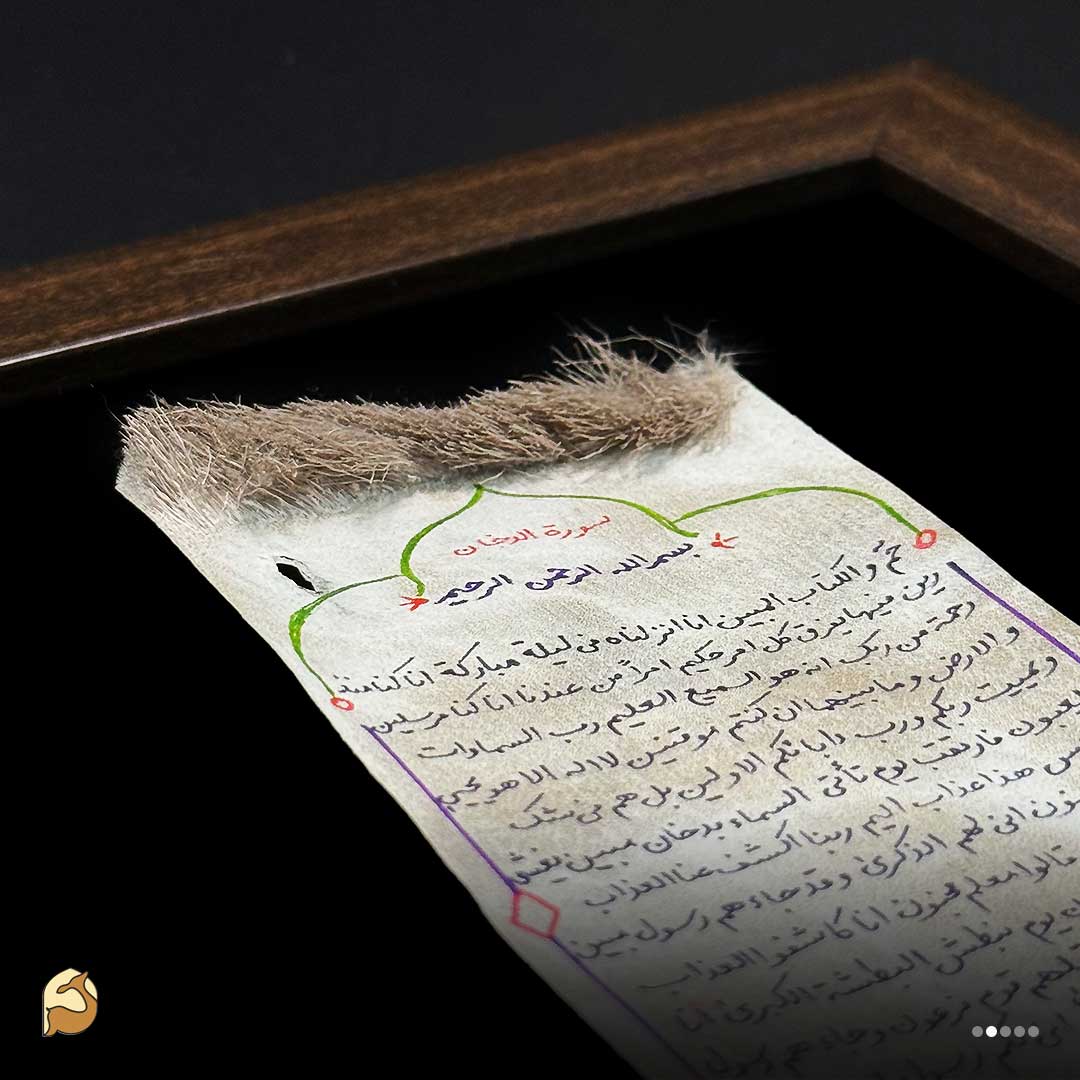 سورة الدخان
بسم الله الرحمن الرحيم
حم والكتاب المبين انا انزلناه في ليلة مباركة انا كنا منذ
رين فيها يفرق كل امر حكيم امراً من عندنا انا كنا مرسلين
رحمة من ربك انه هو السميع العليم رب السماوات
و الارض وما بينهما ان كنتم موقنين لا اله الا هو يحيي
ويميت ربكم ورب ابائكم الاولين بل هم في شك
يلعبون فارتقب يوم تأتي السماء بدخان مبين يغشى
هذا عذاب اليم ربنا اكشف عنا العذاب
انى لهم الذكرى وقد جاءهم رسول مبين
قالوا معلم مجنون انا كاشفوا العذاب
يوم نبطش البطشة الكبرى انا
قوم فرعون وجاءهم رسول